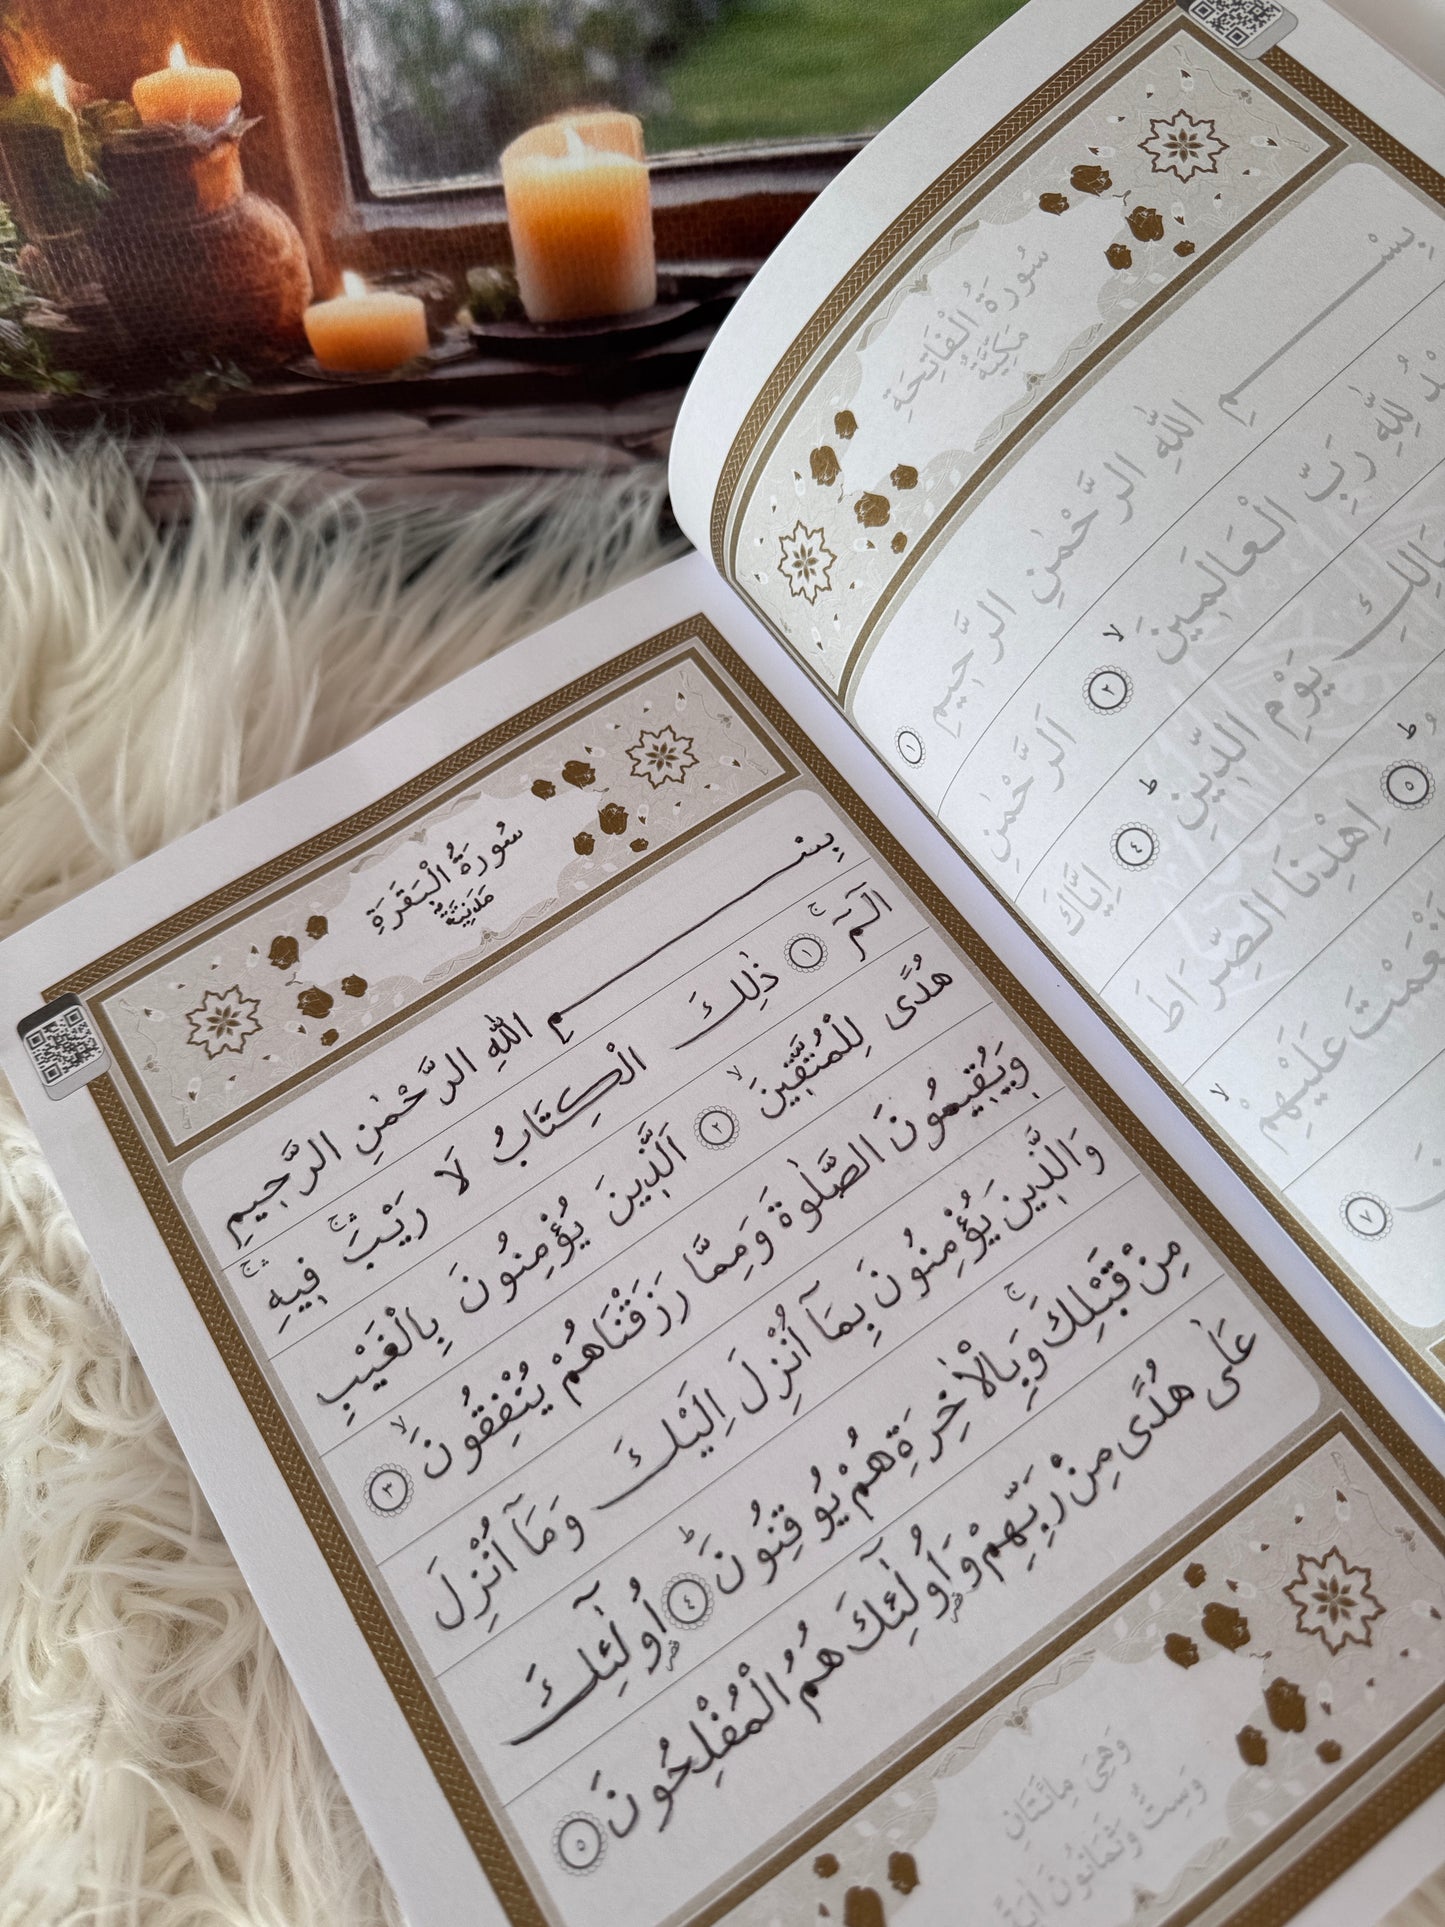 سُورَةُ الْفَاتِحَةِ
مَكِّيَّةٌ
بِسْمِ اللّٰهِ الرَّحْمٰنِ الرَّحِيمِ ١
لِلّٰهِ رَبِّ الْعَالَمِينَ ٢ اَلرَّحْمٰنِ
يَوْمِ الدِّينِ ٤ اِيَّاكَ
٥ اِهْدِنَا الصِّرَاطَ
عَلَيْهِمْ
٧
سُورَةُ الْبَقَرَةِ
مَدَنِيَّةٌ
بِسْمِ اللّٰهِ الرَّحْمٰنِ الرَّحِيمِ
الٓمٓ ١ ذٰلِكَ الْكِتَابُ لَا رَيْبَ فِيهِ
هُدًى لِلْمُتَّقِينَ ٢ اَلَّذِينَ يُؤْمِنُونَ بِالْغَيْبِ
وَيُقِيمُونَ الصَّلٰوةَ وَمِمَّا رَزَقْنَاهُمْ يُنْفِقُونَ ٣
وَالَّذِينَ يُؤْمِنُونَ بِمَآ اُنْزِلَ اِلَيْكَ وَمَآ اُنْزِلَ
مِنْ قَبْلِكَ وَبِالْاٰخِرَةِ هُمْ يُوقِنُونَ ٤ اُو۬لٰٓئِكَ
عَلٰى هُدًى مِنْ رَبِّهِمْ وَاُو۬لٰٓئِكَ هُمُ الْمُفْلِحُونَ ٥
وَهِيَ مِائَتَانِ
وَسِتٌّ وَثَمَانُونَ اٰيَةً